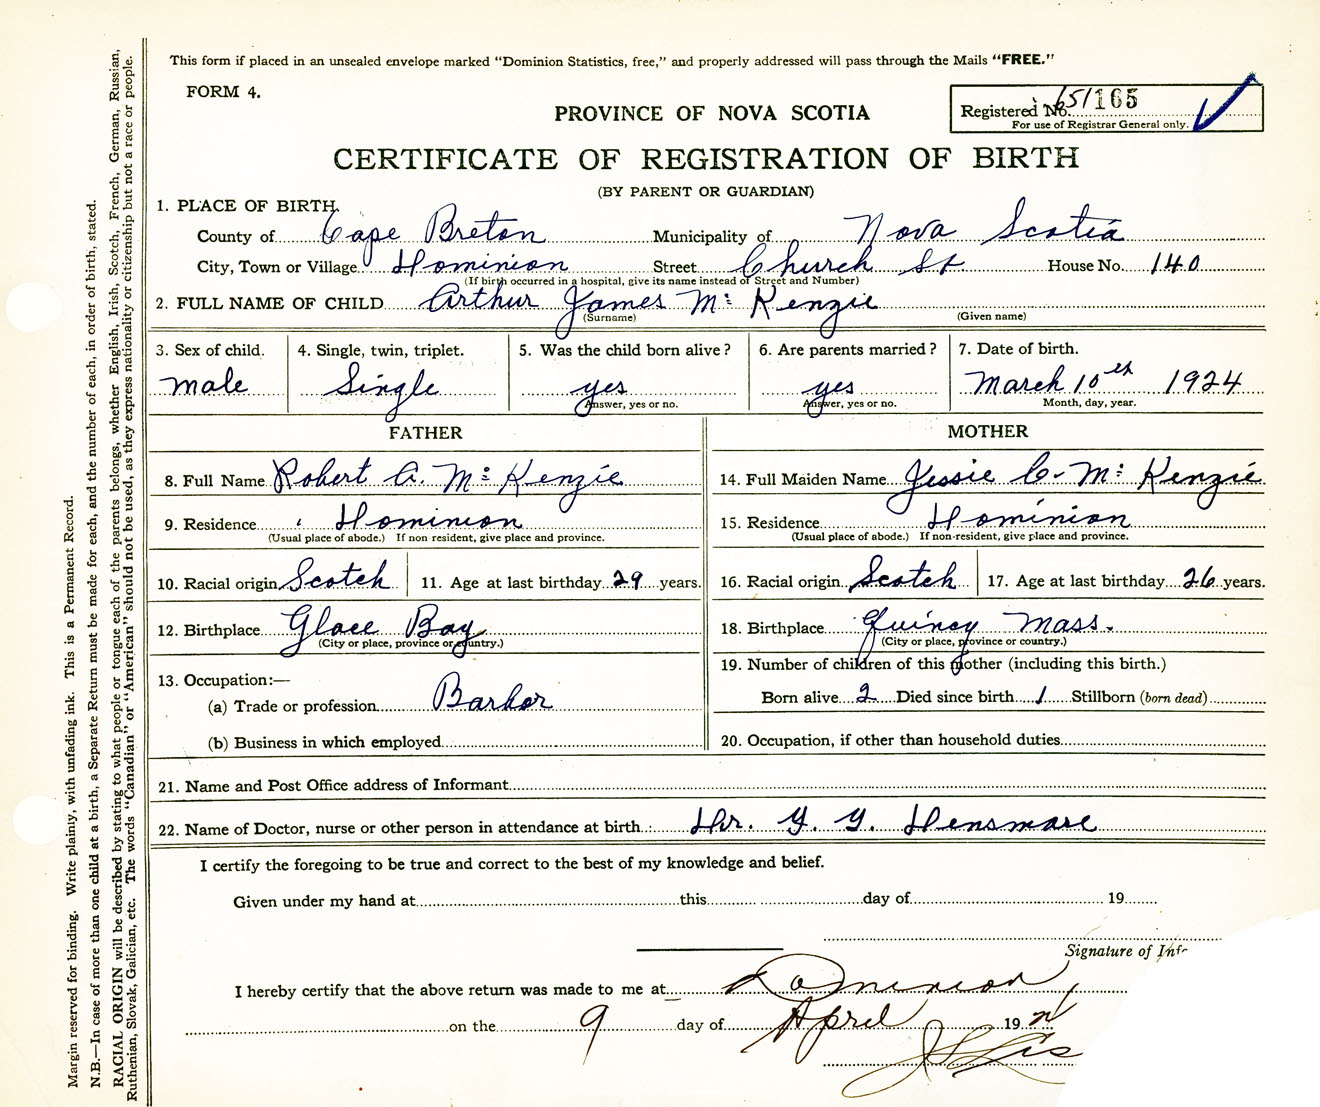 This form if placed in an unsealed envelope marked "Dominion Statistics, free," and properly addressed will pass through the Mails "FREE."
FORM 4.
PROVINCE OF NOVA SCOTIA
Registered No. 651165
For use of Registrar General only.
CERTIFICATE OF REGISTRATION OF BIRTH
(BY PARENT OR GUARDIAN)
1. PLACE OF BIRTH.
County of Cape Breton Municipality of Nova Scotia
City, Town or Village Dominion Street Church St House No. 140
(If birth occurred in a hospital, give its name instead of Street and Number)
2. FULL NAME OF CHILD Arthur James Mc Kenzie
(Surname) (Given name)
3. Sex of child. 4. Single, twin, triplet. 5. Was the child born alive? 6. Are parents married? 7. Date of birth.
male Single yes yes March 10th 1924
Answer, yes or no. Answer, yes or no. Month, day, year.
FATHER
8. Full Name Robert A. Mc Kenzie
9. Residence Dominion
(Usual place of abode.) If non-resident, give place and province.
10. Racial origin Scotch 11. Age at last birthday 29 years.
12. Birthplace Glace Bay
(City or place, province or country.)
13. Occupation:—
(a) Trade or profession Barbor
(b) Business in which employed
MOTHER
14. Full Maiden Name Jessie C. Mc Kenzie
15. Residence Dominion
(Usual place of abode.) If non-resident, give place and province.
16. Racial origin Scotch 17. Age at last birthday 26 years.
18. Birthplace Quincy Mass.
(City or place, province or country.)
19. Number of children of this mother (including this birth.)
Born alive 2 Died since birth 1 Stillborn (born dead)
20. Occupation, if other than household duties
21. Name and Post Office address of Informant
22. Name of Doctor, nurse or other person in attendance at birth Dr. G. G. Densmore
I certify the foregoing to be true and correct to the best of my knowledge and belief.
Given under my hand at this day of 19
Signature of
I hereby certify that the above return was made to me at Dominion
on the 9 day of April 192
Margin reserved for binding. Write plainly, with unfading ink. This is a Permanent Record.
N.B.—In case of more than one child at a birth, a Separate Return must be made for each, and the number of each, in order of birth, stated.
RACIAL ORIGIN will be described by stating to what people or tongue each of the parents belongs, whether English, Irish, Scotch, French, German, Russian,
Ruthenian, Slovak, Galician, etc. The words "Canadian" or "American" should not be used, as they express nationality or citizenship but not a race or people.